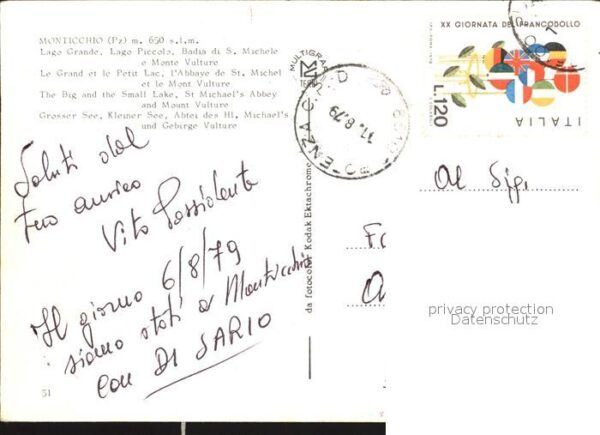 MONTICCHIO (Pz) m. 650 s.l.m.
Lago Grande, Lago Piccolo, Badia di S. Michele
e Monte Vulture
Le Grand et le Petit Lac, l'Abbaye de St. Michel
et le Mont Vulture
The Big and the Small Lake, St Michael's Abbey
and Mount Vulture
Grosser See, Kleiner See, Abtei des Hl. Michael's
und Gebirge Vulture
Saluti dal
tuo amico
Vito
Il giorno 6/8/79
siamo stati a Monticchio
con DI SARIO
51
MULTIGRAF
da fotocolor Kodak Ektachrome
POTENZA
11.8.79
XX GIORNATA DEL FRANCOBOLLO
L.120
ITALIA
Al Sig.
privacy protection
Datenschutz